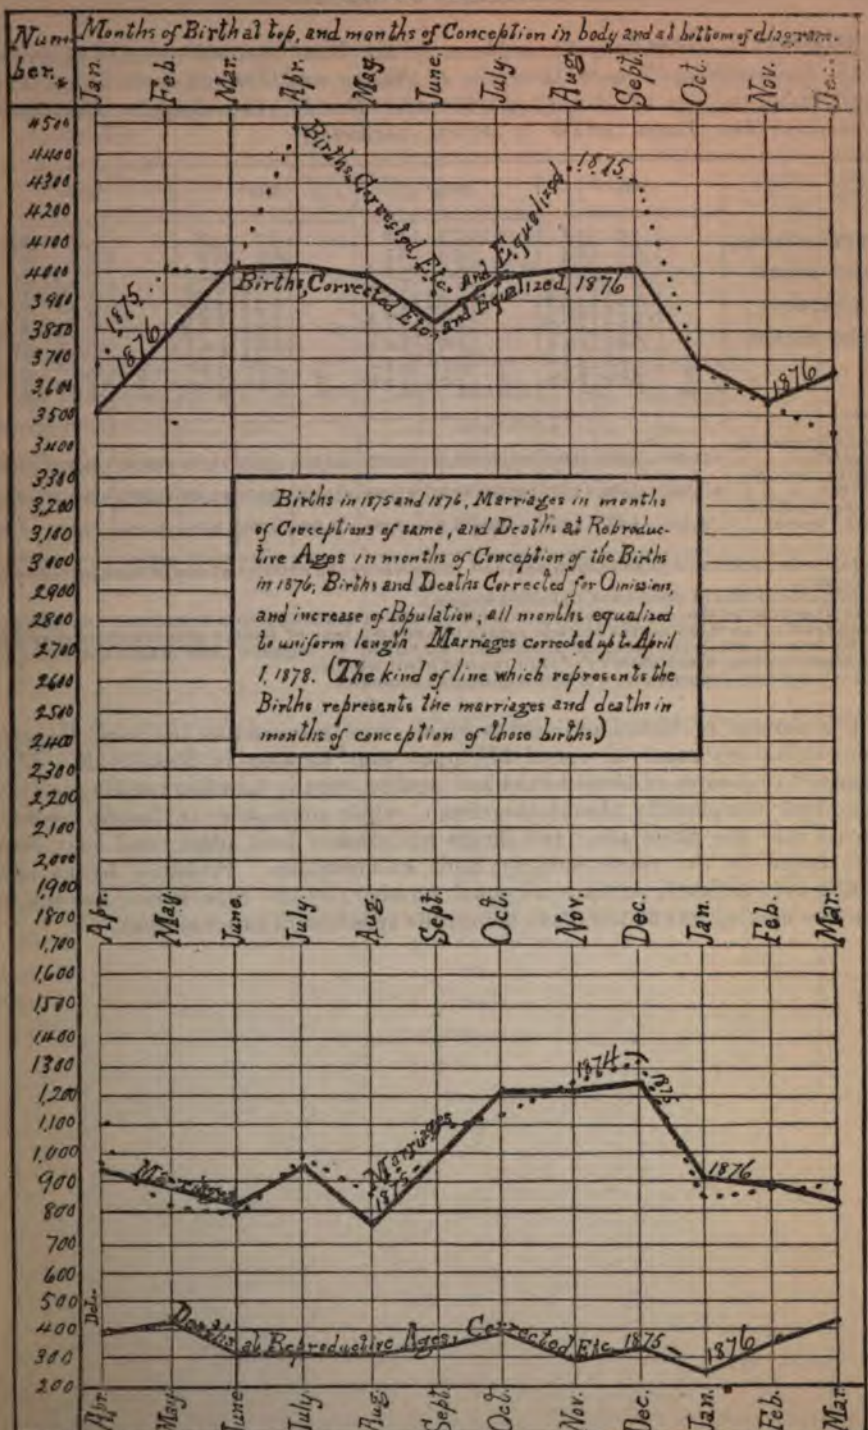 Num- Months of Birth at top, and months of Conception in body and at bottom of diagram.
ber.
Jan. Feb. Mar. Apr. May June July Aug Sept. Oct. Nov. Dec.
4500
4400
4300
4200
4100
4000
3900
3800
3700
3,600
3500
3400
3300
3,200
3,100
3000
2900
2800
2700
2600
2500
2400
2,300
2,200
2,100
2,000
1,900
1800
1,700
1,600
1,500
1,400
1300
1,200
1,100
1,000
900
800
700
600
500
400
300
200
Births, Corrected, Etc. and Equalized 1875
Births, Corrected Etc. and Equalized, 1876
1875
1876
1876
Births in 1875 and 1876, Marriages in months
of Conceptions of same, and Deaths at Reproduc-
tive Ages in months of Conception of the Births
in 1876, Births and Deaths Corrected for Omissions,
and increase of Population, all months equalized
to uniform length Marriages corrected up to April
1, 1878. (The kind of line which represents the
Births represents the marriages and deaths in
months of conception of those births.)
Apr. May. June. July Aug. Sept. Oct. Nov. Dec. Jan. Feb. Mar.
Marriages
Marriages
1875
1874
1875
1876
Deaths at Reproductive Ages, Corrected Etc. 1875
1876
Apr. May June July Aug. Sept. Oct. Nov. Dec. Jan. Feb. Mar.